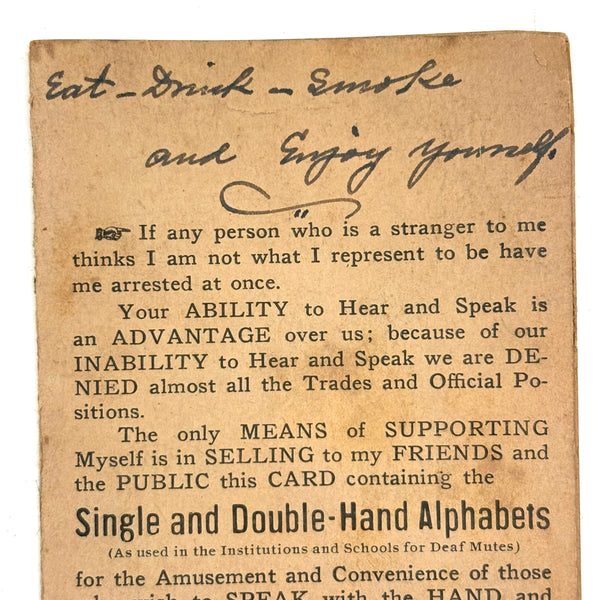 Eat - Drink - Smoke
and Enjoy Yourself.
☞ If any person who is a stranger to me
thinks I am not what I represent to be have
me arrested at once.
Your ABILITY to Hear and Speak is
an ADVANTAGE over us; because of our
INABILITY to Hear and Speak we are DE-
NIED almost all the Trades and Official Po-
sitions.
The only MEANS of SUPPORTING
Myself is in SELLING to my FRIENDS and
the PUBLIC this CARD containing the
Single and Double-Hand Alphabets
(As used in the Institutions and Schools for Deaf Mutes)
for the Amusement and Convenience of those
who wish to SPEAK with the HAND and